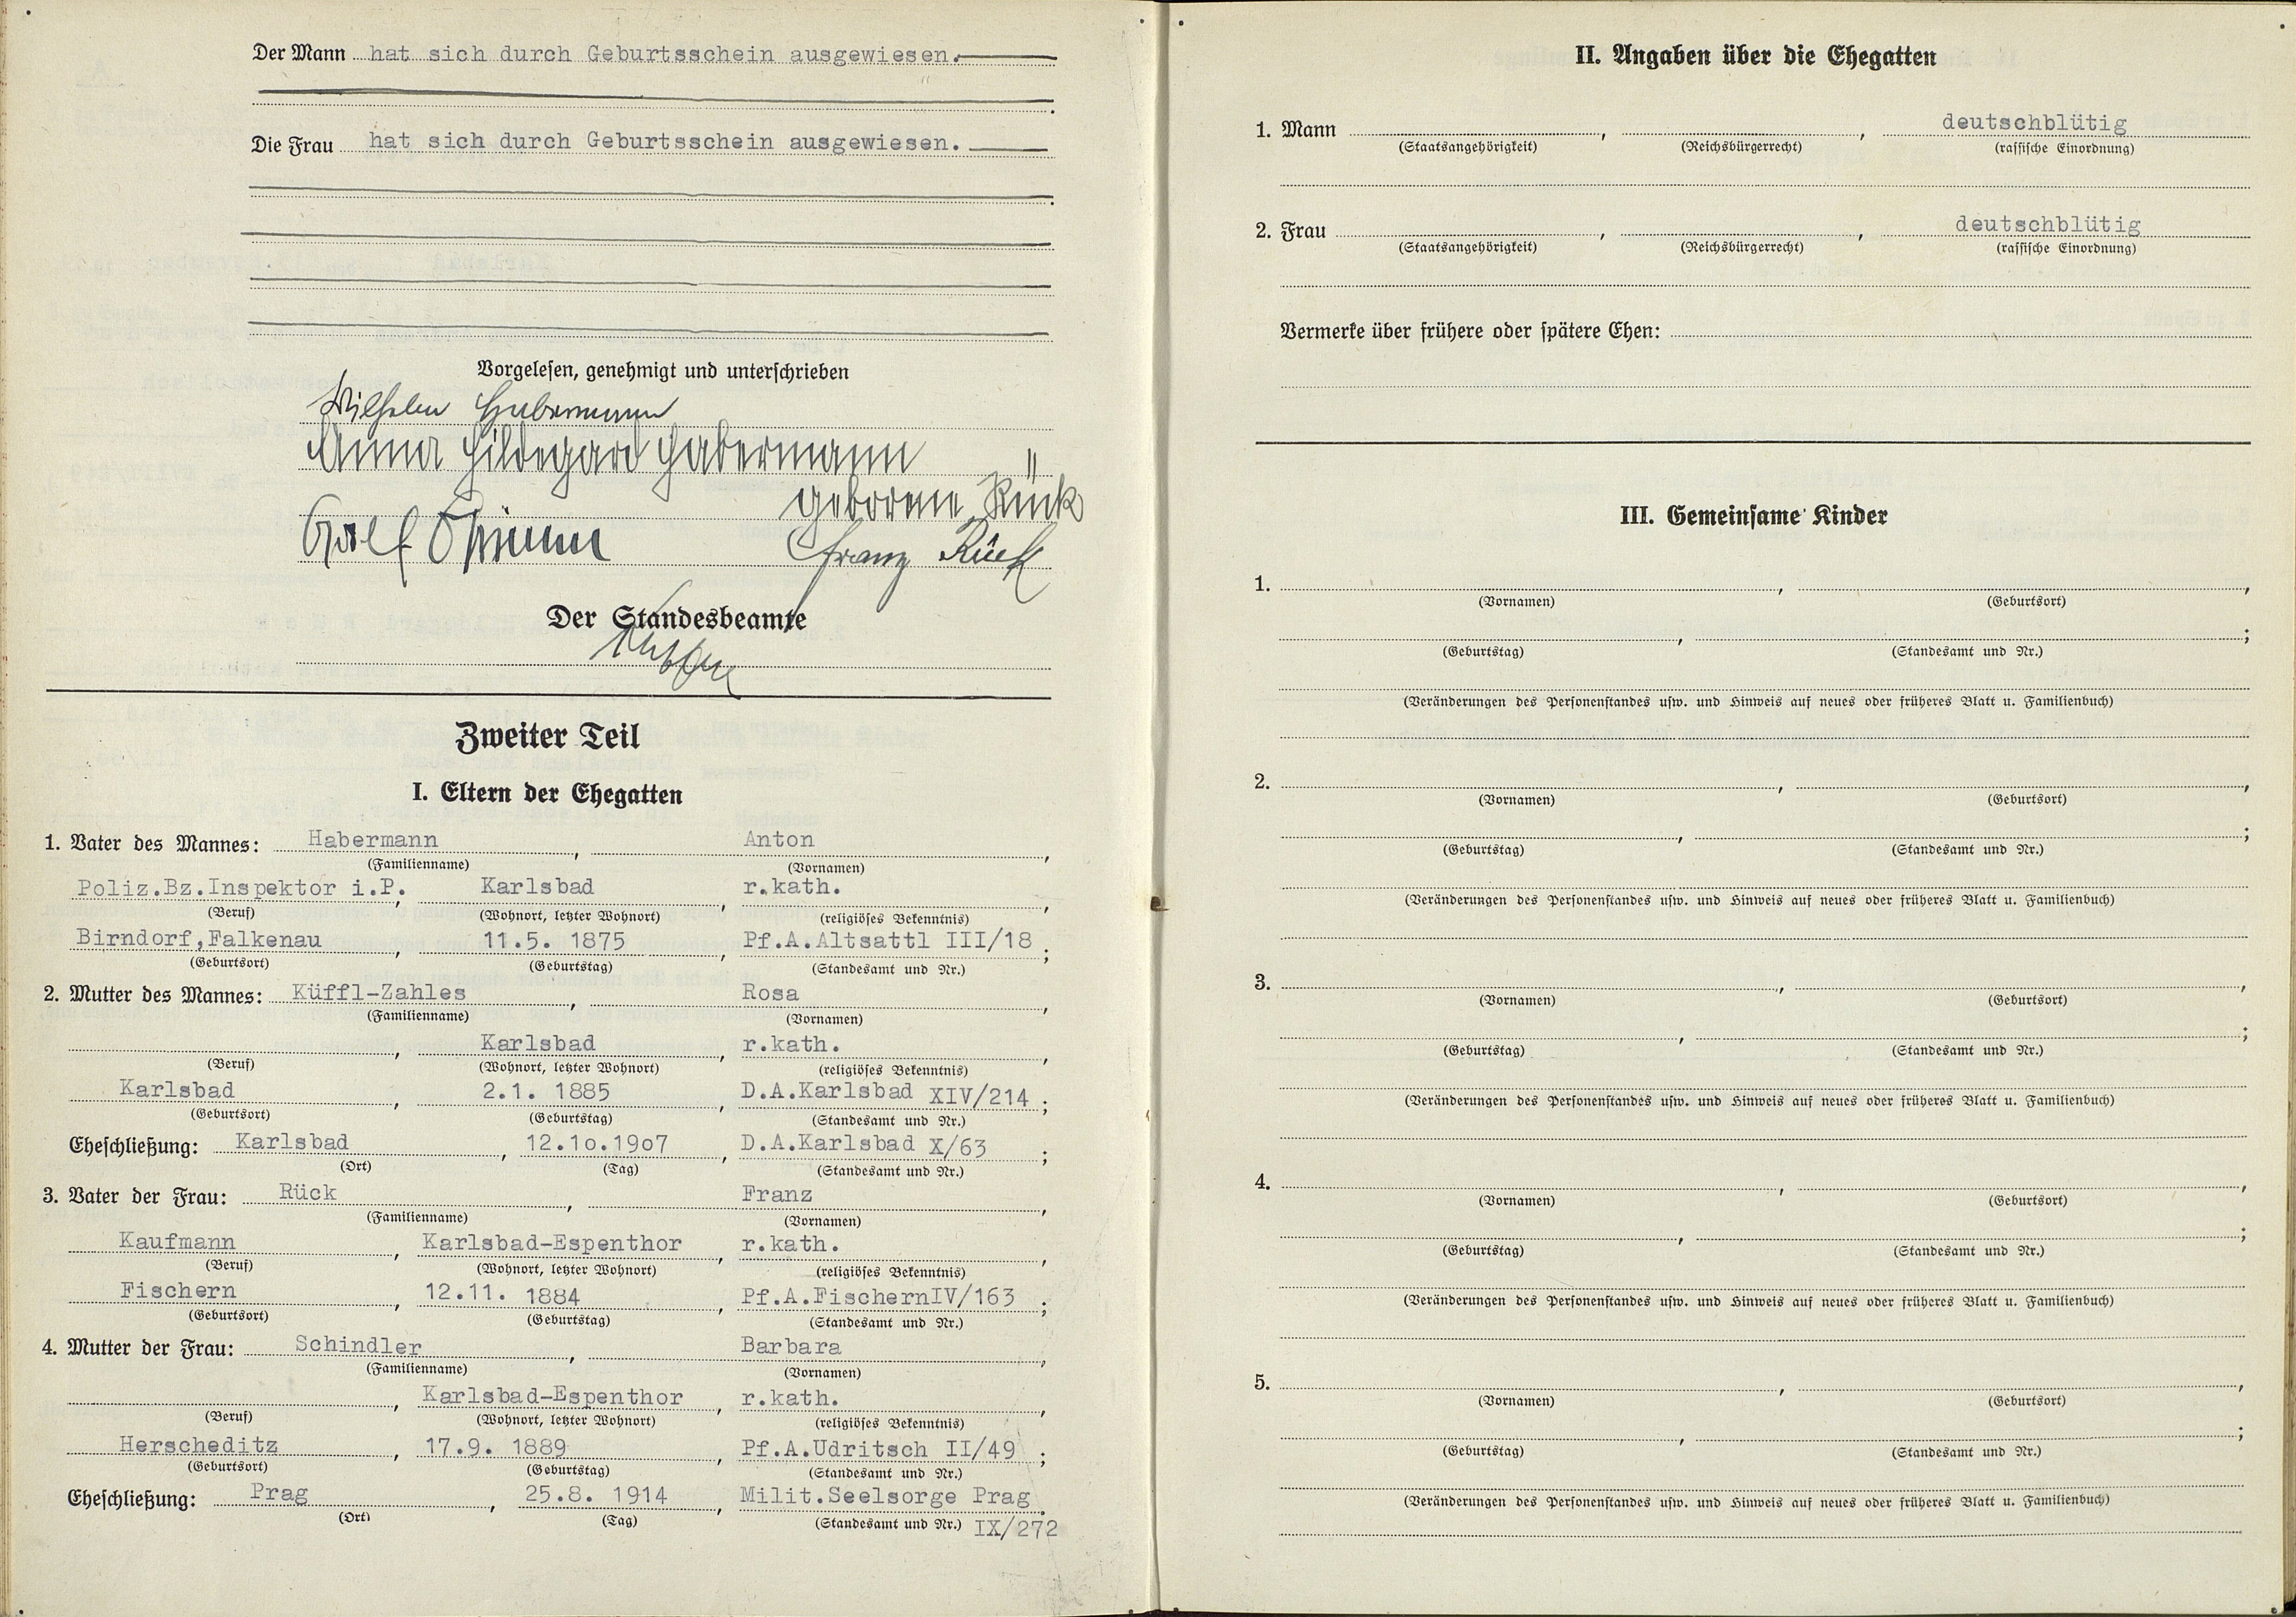 Der Mann hat sich durch Geburtsschein ausgewiesen.
Die Frau hat sich durch Geburtsschein ausgewiesen.
Vorgelesen, genehmigt und unterschrieben
Wilhelm Habermann
Anna Hildegard Habermann
geborene Rück
Franz Rück
Der Standesbeamte
Zweiter Teil
I. Eltern der Ehegatten
1. Vater des Mannes: Habermann, Anton,
(Familienname) (Vornamen)
Poliz.Bz.Inspektor i.P., Karlsbad, r.kath.,
(Beruf) (Wohnort, letzter Wohnort) (religiöses Bekenntnis)
Birndorf,Falkenau, 11.5. 1875, Pf.A.Altsattl III/18;
(Geburtsort) (Geburtstag) (Standesamt und Nr.)
2. Mutter des Mannes: Küffl-Zahles, Rosa,
(Familienname) (Vornamen)
, Karlsbad, r.kath.,
(Beruf) (Wohnort, letzter Wohnort) (religiöses Bekenntnis)
Karlsbad, 2.1. 1885, D.A.Karlsbad XIV/214;
(Geburtsort) (Geburtstag) (Standesamt und Nr.)
Eheschließung: Karlsbad, 12.1o.19o7, D.A.Karlsbad X/63;
(Ort) (Tag) (Standesamt und Nr.)
3. Vater der Frau: Rück, Franz,
(Familienname) (Vornamen)
Kaufmann, Karlsbad-Espenthor, r.kath.,
(Beruf) (Wohnort, letzter Wohnort) (religiöses Bekenntnis)
Fischern, 12.11. 1884, Pf.A.FischernIV/163;
(Geburtsort) (Geburtstag) (Standesamt und Nr.)
4. Mutter der Frau: Schindler, Barbara,
(Familienname) (Vornamen)
, Karlsbad-Espenthor, r.kath.,
(Beruf) (Wohnort, letzter Wohnort) (religiöses Bekenntnis)
Herscheditz, 17.9. 1889, Pf.A.Udritsch II/49;
(Geburtsort) (Geburtstag) (Standesamt und Nr.)
Eheschließung: Prag, 25.8. 1914, Milit.Seelsorge Prag.
(Ort) (Tag) (Standesamt und Nr.) IX/272
II. Angaben über die Ehegatten
1. Mann , , deutschblütig
(Staatsangehörigkeit) (Reichsbürgerrecht) (rassische Einordnung)
2. Frau , , deutschblütig
(Staatsangehörigkeit) (Reichsbürgerrecht) (rassische Einordnung)
Vermerke über frühere oder spätere Ehen:
III. Gemeinsame Kinder
1. , ,
(Vornamen) (Geburtsort)
, ;
(Geburtstag) (Standesamt und Nr.)
(Veränderungen des Personenstandes usw. und Hinweis auf neues oder früheres Blatt u. Familienbuch)
2. , ,
(Vornamen) (Geburtsort)
, ;
(Geburtstag) (Standesamt und Nr.)
(Veränderungen des Personenstandes usw. und Hinweis auf neues oder früheres Blatt u. Familienbuch)
3. , ,
(Vornamen) (Geburtsort)
, ;
(Geburtstag) (Standesamt und Nr.)
(Veränderungen des Personenstandes usw. und Hinweis auf neues oder früheres Blatt u. Familienbuch)
4. , ,
(Vornamen) (Geburtsort)
, ;
(Geburtstag) (Standesamt und Nr.)
(Veränderungen des Personenstandes usw. und Hinweis auf neues oder früheres Blatt u. Familienbuch)
5. , ,
(Vornamen) (Geburtsort)
, ;
(Geburtstag) (Standesamt und Nr.)
(Veränderungen des Personenstandes usw. und Hinweis auf neues oder früheres Blatt u. Familienbuch)